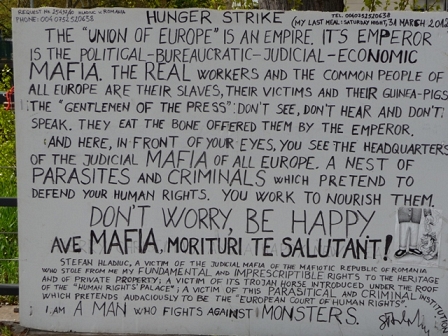 REQUEST No 25451/10 HLADIUC v. ROMANIA
PHONE: 0040752520638
HUNGER STRIKE (MY LAST MEAL: SATURDAY NIGHT, 31 MARCH 2012)
TEL. 0040752520638
THE "UNION OF EUROPE" IS AN EMPIRE. IT'S EMPEROR
IS THE POLITICAL-BUREAUCRATIC-JUDICIAL-ECONOMIC
MAFIA. THE REAL WORKERS AND THE COMMON PEOPLE OF
ALL EUROPE ARE THEIR SLAVES, THEIR VICTIMS AND THEIR GUINEA-PIGS.
THE "GENTLEMEN OF THE PRESS": DON'T SEE, DON'T HEAR AND DON'T
SPEAK. THEY EAT THE BONE OFFERED THEM BY THE EMPEROR.
AND HERE, IN FRONT OF YOUR EYES, YOU SEE THE HEADQUARTERS
OF THE JUDICIAL MAFIA OF ALL EUROPE. A NEST OF
PARASITES AND CRIMINALS WHICH PRETEND TO
DEFEND YOUR HUMAN RIGHTS. YOU WORK TO NOURISH THEM.
DON'T WORRY, BE HAPPY
AVE MAFIA. MORITURI TE SALUTANT!
STEFAN HLADIUC, A VICTIM OF THE JUDICIAL MAFIA OF THE MAFIOTIC REPUBLIC OF ROMANIA
WHO STOLE FROM ME MY FUNDAMENTAL AND IMPRESCRIPTIBLE RIGHTS TO THE HERITAGE
AND OF PRIVATE PROPERTY; A VICTIM OF ITS TROJAN HORSE INTRODUCED UNDER THE ROOF
OF THE "HUMAN RIGHTS' PALACE"; A VICTIM OF THIS PARASITICAL AND CRIMINAL
WHICH PRETENDS AUDACIOUSLY TO BE THE "EUROPEAN COURT OF HUMAN RIGHTS".
I AM A MAN WHO FIGHTS AGAINST MONSTERS.